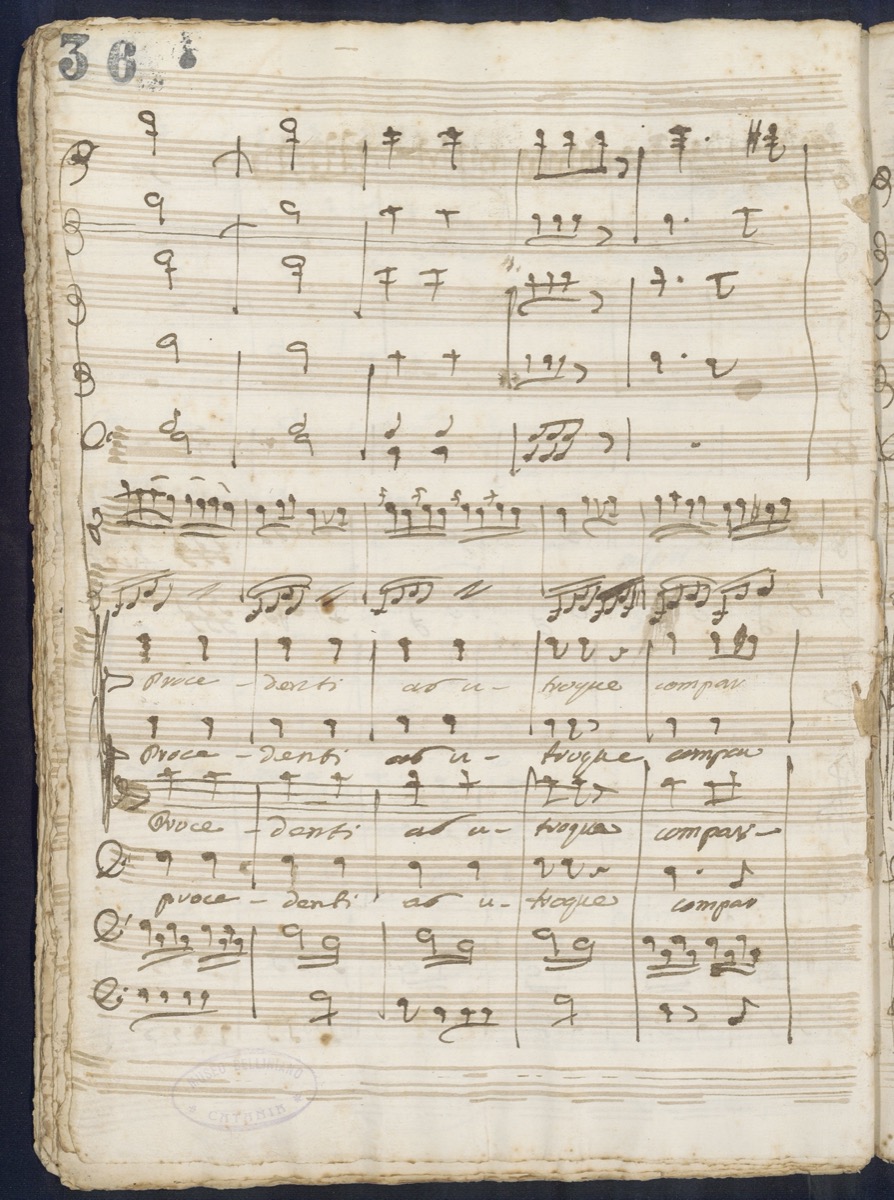 36
Proce - denti ab u - troque compar
Proce - denti ab u - troque compa
Proce - denti ab u - troque compar -
proce - denti ab u - troque compar
MUSEO BELLINIANO
CATANIA